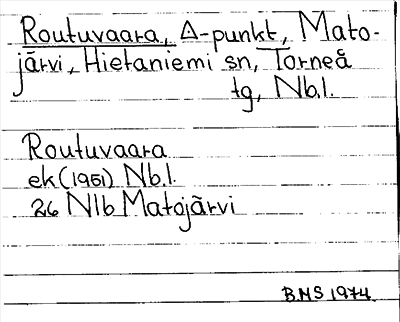 Routuvaara, Δ-punkt, Mato-
järvi, Hietaniemi sn, Torneå
tg, Nb.l.
Routuvaara
ek (1951) Nb.l.
26 Nlb Matojärvi
BMS 1974